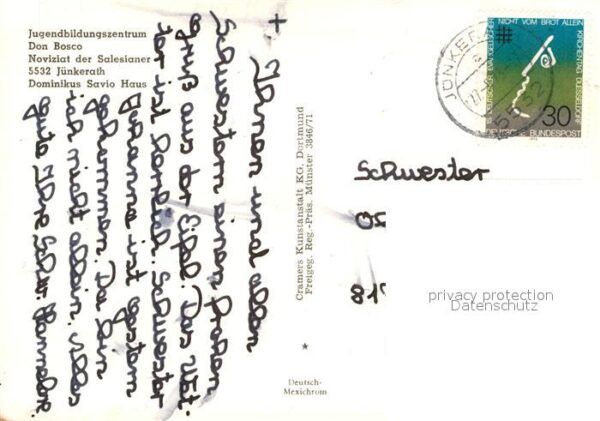 Jugendbildungszentrum
Don Bosco
Noviziat der Salesianer
5532 Jünkerath
Dominikus Savio Haus
+
Ihnen und allen
Schwestern einen frohen
Gruß aus der Eifel. Das Wet-
ter ist herrlich. Schwester
Johanna ist gestern
gekommen. Da bin
ich nicht allein. Alles
gute Ihre Schw. Hannelore.
Cramers Kunstanstalt KG, Dortmund
Freigeg. Reg.-Präs. Münster 3846/71
Deutsch-
Mexichrom
NICHT VOM BROT ALLEIN
KIRCHENTAG DÜSSELDORF
DEUTSCHER EVANGELISCHER
30
DEUTSCHE BUNDESPOST
JÜNKERATH
5532
Schwester
privacy protection
Datenschutz